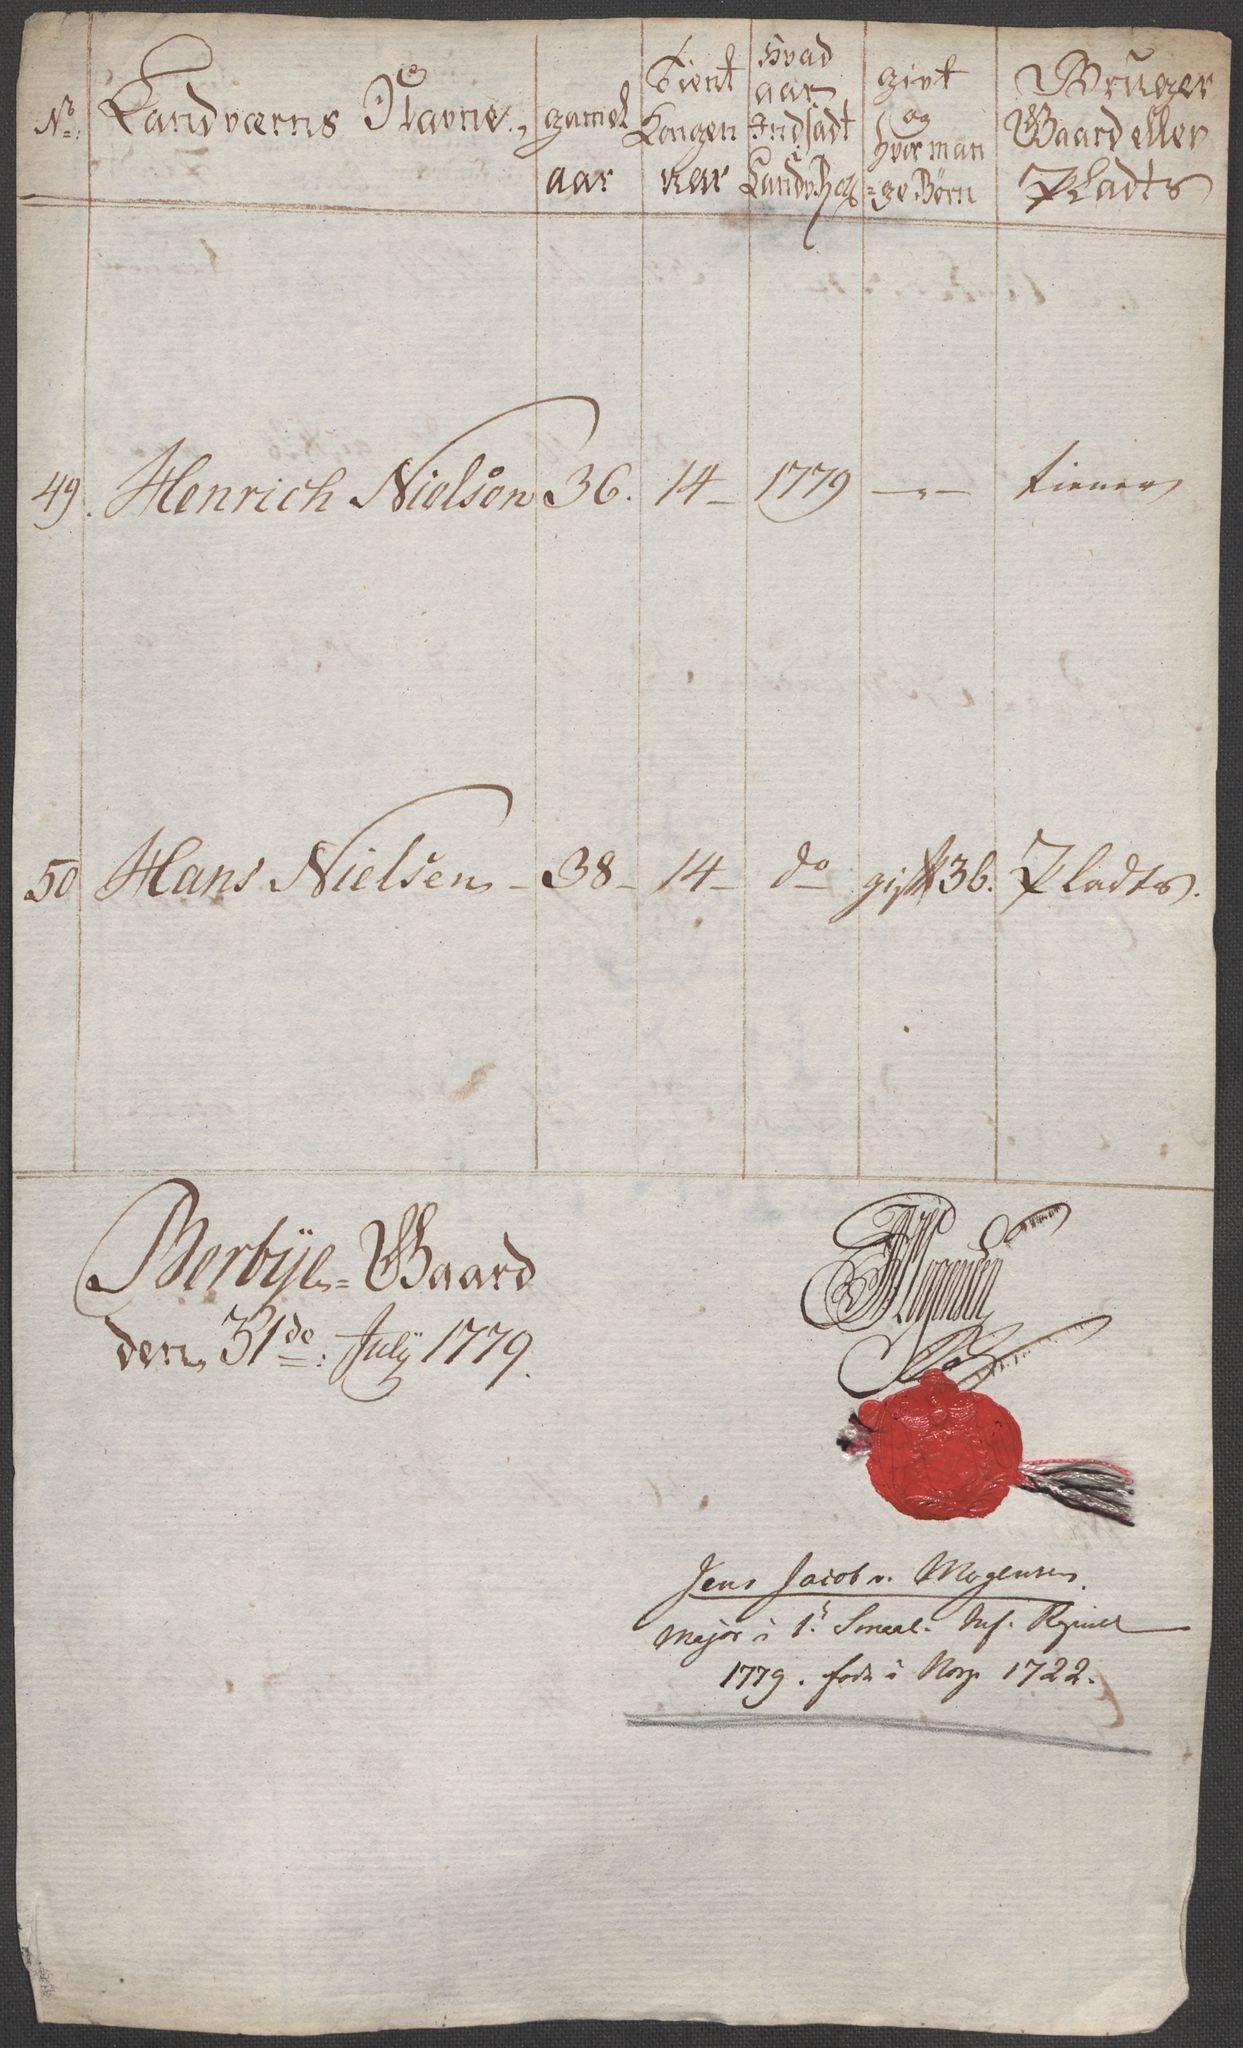 No: Landværns Navne, gamel aar Tient Kongen aar Hvad aar Indsadt i Landv: givt og hvor man=ge Børn Bruger Gaard eller Pladts
49. Henrich Nielsen 36. 14- 1779 —"— tiener
50 Hans Nielsen - 38- 14- do gift 3b. Pladts.
Berbÿe=Gaard
den 31de: Julÿ 1779.
JJMogensen
Jens Jacob v. Mogensen.
Major i 1. Smaal. Inf. Regiment
1779. født i Norge 1722.